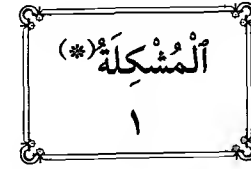 ٱلْمُشْكِلَةُ(*)
١